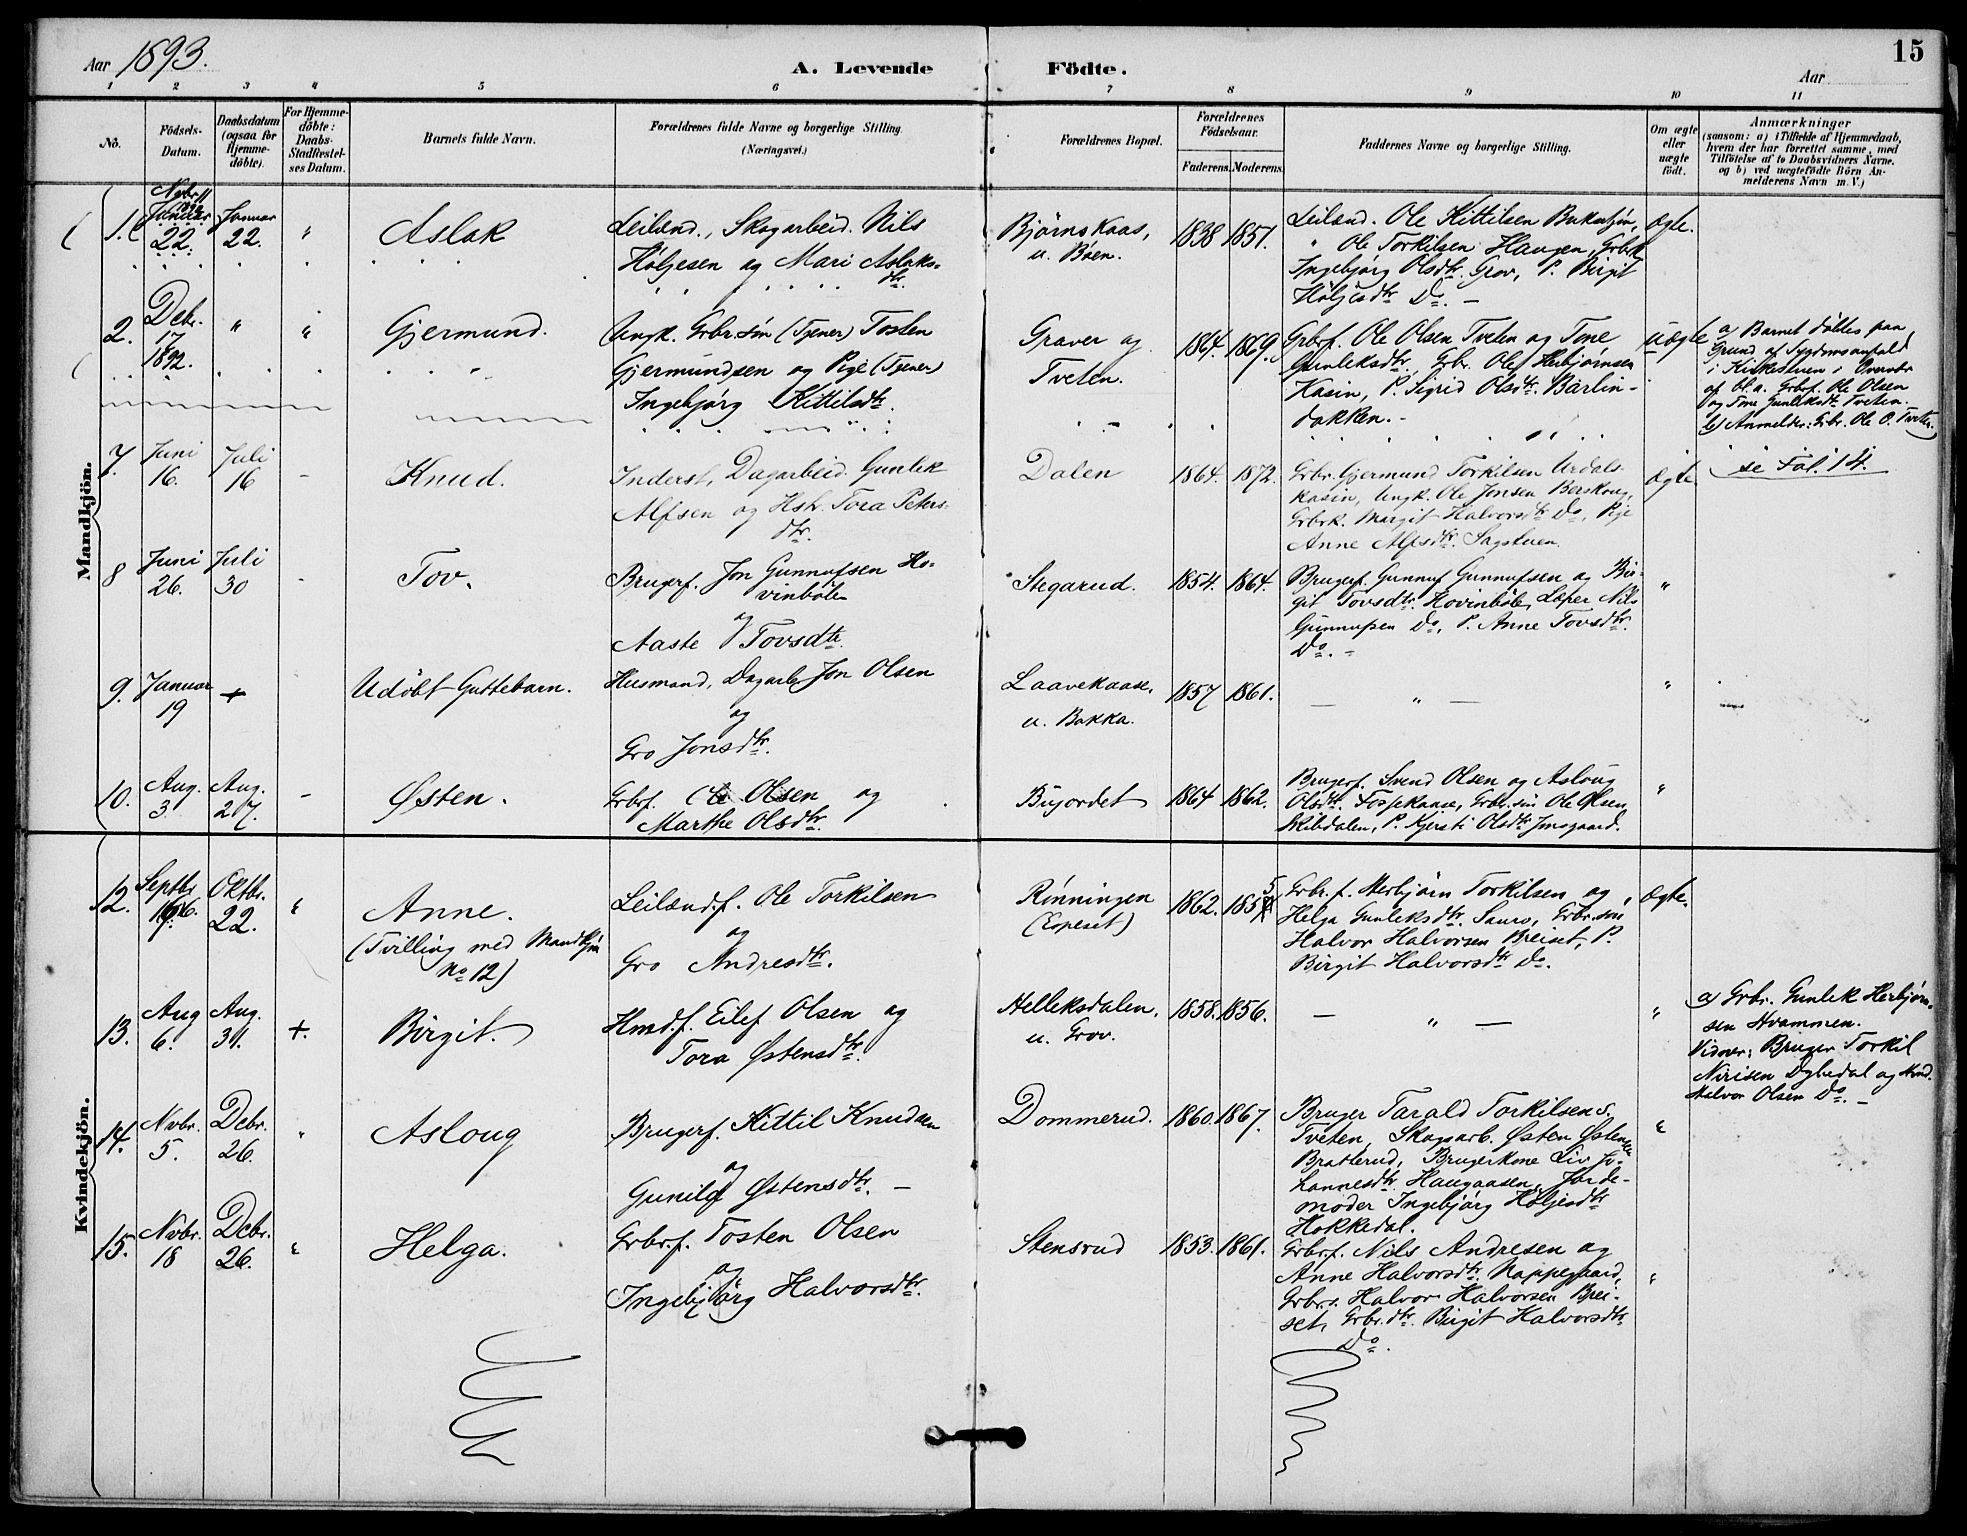 Aar 1893.
A. Levende Födte.
15
Aar
1 2 3 4 5 6 7 8 9 10 11
No.
Födsels-Datum.
Daabsdatum (ogsaa for Hjemmedöbte).
For Hjemmedöbte: Daabs-Stadfæstelses Datum.
Barnets fulde Navn.
Forældrenes fulde Navne og borgerlige Stilling. (Næringsvei.)
Forældrenes Bopæl.
Forældrenes Födselsaar.
Faderens. Moderens.
Faddernes Navne og borgerlige Stilling.
Om ægte eller uægte födt.
Anmærkninger
(saasom: a) i Tilfælde af Hjemmedaab, hvem der har forrettet samme, med Tilföielse af to Daabsvidners Navne. og b) ved uægtefödte Börn Anmelderens Navn m. V.)
Mandkjön.
1. Januar 22. Januar 22. " Aslak
Leilænd., Skogarbeid. Nils
Høljesen og Mari Aslaks-
dtr.
Bjørnskaas,
u. Bøen.
1838 1851.
Leilænd. Ole Kittilsen
" Ole Torkilsen Haugen, Grbrk.
Ingebjørg Olsdtr. Grov, P. Birgit
Høljesdtr Do. -
Ægte.
2. Debr. 17 1892. " " Gjermund.
Ungk. Grbr.søn (Tjener) Tosten
Gjermundsen og Pige (Tjener)
Ingebjørg Kittilsdtr.
Graver og
Tveten.
1864. 1869.
Grbrf. Ole Olsen Tveten og Tone
Gunleksdtr., Grbr. Ole Herbjørnsen
Kasin, P. Sigrid Olsdtr. Barlin-
dokken. -
uægte
a) Barnet døbtes paa
Grund af Sygdomsanfald
i Kirkestuen i
af bl.a. Grbrf. Ole Olsen
og Tone Gunleksdtr Tveten.
b) Anmelder: Grbr. Ole O. Tveten.
7. Juni 16. Juli 16 - Knud.
Inderst, Dagarbeid. Gunlek
Alfsen og Hstr. Tora Peters-
dtr.
Dalen
1864. 1872.
Grbr. Gjermund Torkilsen Urdals-
kasin, Ungk. Ole Jonsen Berskoug,
Grbrk. Margit Halvorsdtr Do, Pige
Anne Alfsdtr. Sagstuen.
Ægte
se Fol. 14.
8 Juni 26. Juli 30 - Tov.
Brugerf. Jon Gunnufsen Ho-
vinbøle
og
Aaste Tovsdtr.
Stegarud.
1854. 1864.
Brugerf. Gunnuf Gunnufsen og Bir-
git Tovsdtr. Hovinbøle, Løper Nils
Gunnufsen Do, P. Anne Tovsdtr.
Do. -
"
9. Januar 19 + Udøbt Guttebarn.
Husmand, Dagarb. Jon Olsen
og
Gro Jonsdtr.
Laavekaase,
u. Bakka.
1857 1861.
- " -
"
10. Aug. 3. Aug. 27. - Østen.
Grbrf. Ole Olsen og
Marthe Olsdtr.
Bugordet
1864 1862.
Brugerf. Svend Olsen og Asloug
Olsdtr. Fossekaase, Grbr.søn Ole Olsen
Skibdalen, P. Kjersti Olsdtr Jonsgaard.
"
Kvindekjön.
12. Septbr. 16. Oktbr. 22. " Anne.
(Tvilling med Mandkjøn
No 12)
Leilænd.f. Ole Torkilsen
og
Gro Andresdtr.
Rønningen
(Espeset)
1862. 1855
Grbr.f. Herbjørn Torkilsen og
Helga Gunleksdtr. Sauro, Grbr.søn
Halvor Halvorsen Breiset, P.
Birgit Halvorsdtr Do.
Ægte.
13. Aug 6. Aug. 31. +. Birgit.
Hmd.f. Eilef Olsen og
Tora Østensdtr.
Helleksdalen,
u. Grov.
1858. 1856.
- " -
"
a) Grbr. Gunlek Herbjørn-
sen Hvammen.
Vidner: Bruger Torkil
Nirisen Dybedal og Hmd.
Halvor Olsen Do. -
14. Nvbr. 5. Debr. 26. " Asloug
Brugerf. Kittil Knudsen
og
Gunild Østensdtr. -
Dommerud.
1860. 1867.
Bruger Tarald Torkilsen S.
Tveten, Skogsarb. Østen Østensen
Bratterud, Brugerkone Liv Jo-
hannesdtr. Haugaasen, Jorde-
moder Ingebjørg Høljesdtr
Hokkedal.
"
15. Nvbr. 18 Debr. 26. " Helga.
Grbr.f. Tosten Olsen
og
Ingebjørg Halvorsdtr.
Stensrud
1853. 1861.
Grbrf. Nils Andresen og
Anne Halvorsdtr. Nappegaard,
Grbr.s. Halvor Halvorsen Brei-
set, Grbr.dtr. Birgit Halvorsdtr
Do.
"